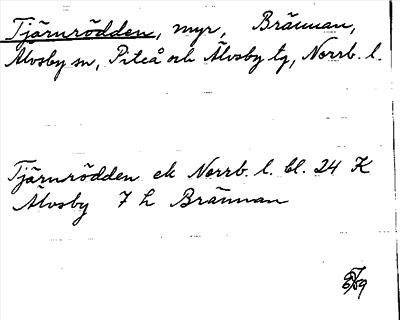 Tjärnrödden, myr, Brännan,
Älvsby sn, Piteå och Älvsby tg, Norrb. l.
Tjärnrödden ek Norrb. l. bl. 24 K
Älvsby 7 h Brännan